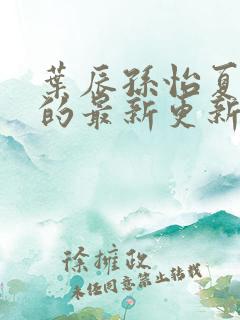 葉辰孫怡夏
的最新更新
徐擁政
未经同意禁止转载